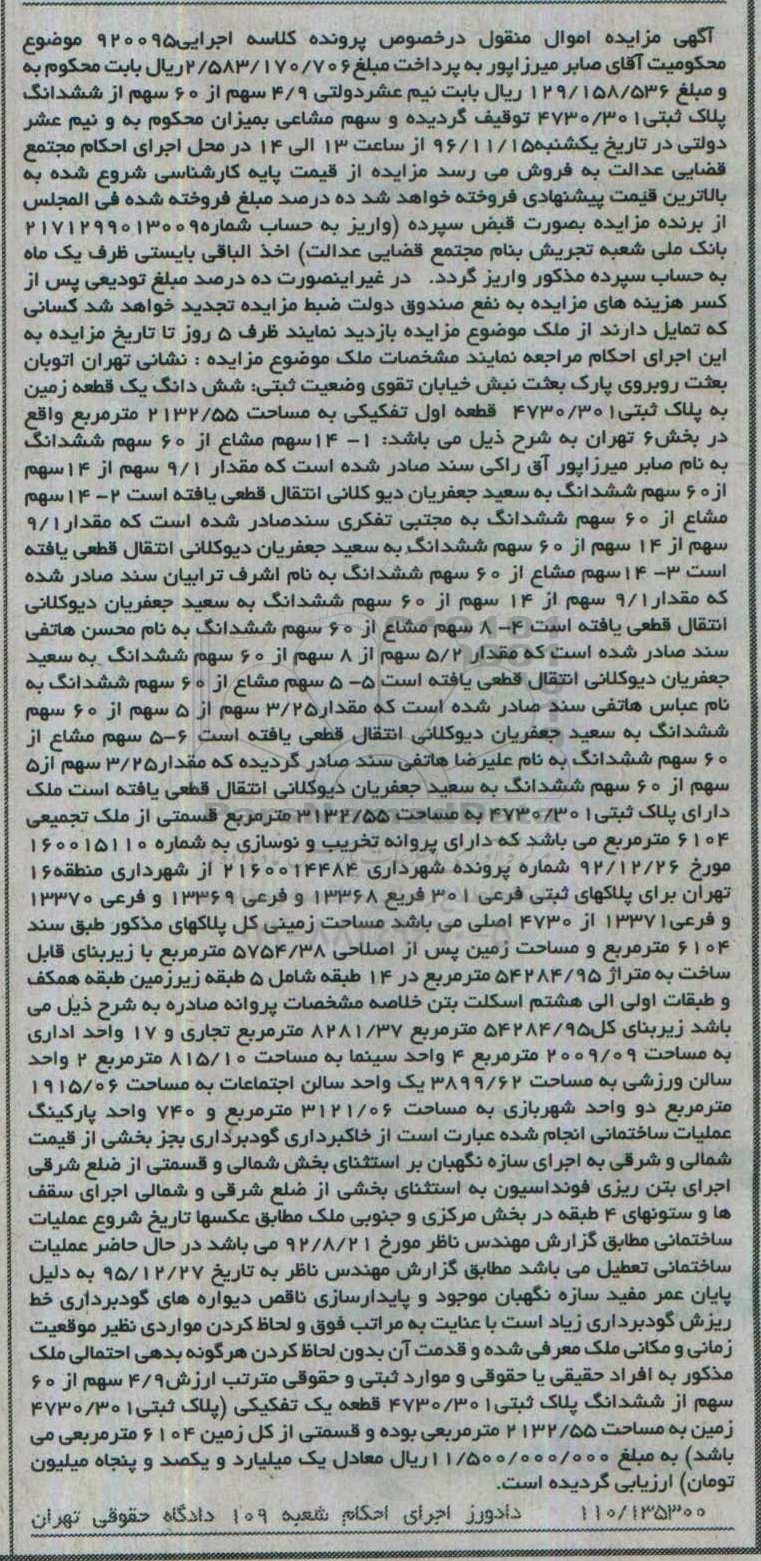 آگهی مزایده اموال منقول درخصوص پرونده کلاسه اجرایی۹۲۰۰۹۵ موضوع
محکومیت آقای صابر میرزاپور به پرداخت مبلغ۲/۵۸۳/۱۷۰/۷۰۶ریال بابت محکوم به
و مبلغ ۱۲۹/۱۵۸/۵۳۶ ریال بابت نیم عشردولتی ۴/۹ سهم از ۶۰ سهم از ششدانگ
پلاک ثبتی۴۷۳۰/۳۰۱ توقیف گردیده و سهم مشاعی بمیزان محکوم به و نیم عشر
دولتی در تاریخ یکشنبه۹۶/۱۱/۱۵ از ساعت ۱۳ الی ۱۴ در محل اجرای احکام مجتمع
قضایی عدالت به فروش می رسد مزایده از قیمت پایه کارشناسی شروع شده به
بالاترین قیمت پیشنهادی فروخته خواهد شد ده درصد مبلغ فروخته شده فی المجلس
از برنده مزایده بصورت قبض سپرده (واریز به حساب شماره۲۱۷۱۲۹۹۰۱۳۰۰۹
بانک ملی شعبه تجریش بنام مجتمع قضایی عدالت) اخذ الباقی بایستی ظرف یک ماه
به حساب سپرده مذکور واریز گردد. در غیراینصورت ده درصد مبلغ تودیعی پس از
کسر هزینه های مزایده به نفع صندوق دولت ضبط مزایده تجدید خواهد شد کسانی
که تمایل دارند از ملک موضوع مزایده بازدید نمایند ظرف ۵ روز تا تاریخ مزایده به
این اجرای احکام مراجعه نمایند مشخصات ملک موضوع مزایده : نشانی تهران اتوبان
بعثت روبروی پارک بعثت نبش خیابان تقوی وضعیت ثبتی: شش دانگ یک قطعه زمین
به پلاک ثبتی۴۷۳۰/۳۰۱ قطعه اول تفکیکی به مساحت ۲۱۳۲/۵۵ مترمربع واقع
در بخش۶ تهران به شرح ذیل می باشد: ۱- ۱۴سهم مشاع از ۶۰ سهم ششدانگ
به نام صابر میرزاپور آق راکی سند صادر شده است که مقدار ۹/۱ سهم از ۱۴سهم
از۶۰ سهم ششدانگ به سعید جعفریان دیو کلانی انتقال قطعی یافته است ۲- ۱۴سهم
مشاع از ۶۰ سهم ششدانگ به مجتبی تفکری سندصادر شده است که مقدار۹/۱
سهم از ۱۴ سهم از ۶۰ سهم ششدانگ به سعید جعفریان دیوکلانی انتقال قطعی یافته
است ۳- ۱۴سهم مشاع از ۶۰ سهم ششدانگ به نام اشرف ترابیان سند صادر شده
که مقدار۹/۱ سهم از ۱۴ سهم از ۶۰ سهم ششدانگ به سعید جعفریان دیوکلانی
انتقال قطعی یافته است ۴- ۸ سهم مشاع از ۶۰ سهم ششدانگ به نام محسن هاتفی
سند صادر شده است که مقدار ۵/۲ سهم از ۸ سهم از ۶۰ سهم ششدانگ به سعید
جعفریان دیوکلانی انتقال قطعی یافته است ۵- ۵ سهم مشاع از ۶۰ سهم ششدانگ به
نام عباس هاتفی سند صادر شده است که مقدار۳/۲۵ سهم از ۵ سهم از ۶۰ سهم
ششدانگ به سعید جعفریان دیوکلانی انتقال قطعی یافته است ۶-۵ سهم مشاع از
۶۰ سهم ششدانگ به نام علیرضا هاتفی سند صادر گردیده که مقدار۳/۲۵ سهم از۵
سهم از ۶۰ سهم ششدانگ به سعید جعفریان دیوکلانی انتقال قطعی یافته است ملک
دارای پلاک ثبتی۴۷۳۰/۳۰۱ به مساحت ۳۱۳۲/۵۵ مترمربع قسمتی از ملک تجمیعی
۶۱۰۴ مترمربع می باشد که دارای پروانه تخریب و نوسازی به شماره ۱۶۰۰۱۵۱۱۰
مورخ ۹۲/۱۲/۲۶ شماره پرونده شهرداری ۲۱۶۰۰۱۴۴۸۴ از شهرداری منطقه۱۶
تهران برای پلاکهای ثبتی فرعی ۳۰۱ فریع ۱۳۳۶۸ و فرعی ۱۳۳۶۹ و فرعی ۱۳۳۷۰
و فرعی۱۳۳۷۱ از ۴۷۳۰ اصلی می باشد مساحت زمینی کل پلاکهای مذکور طبق سند
۶۱۰۴ مترمربع و مساحت زمین پس از اصلاحی ۵۷۵۴/۳۸ مترمربع با زیربنای قابل
ساخت به متراژ ۵۴۲۸۴/۹۵ مترمربع در ۱۴ طبقه شامل ۵ طبقه زیرزمین طبقه همکف
و طبقات اولی الی هشتم اسکلت بتن خلاصه مشخصات پروانه صادره به شرح ذیل می
باشد زیربنای کل۵۴۲۸۴/۹۵ مترمربع ۸۲۸۱/۳۷ مترمربع تجاری و ۱۷ واحد اداری
به مساحت ۲۰۰۹/۰۹ مترمربع ۴ واحد سینما به مساحت ۸۱۵/۱۰ مترمربع ۲ واحد
سالن ورزشی به مساحت ۳۸۹۹/۶۲ یک واحد سالن اجتماعات به مساحت ۱۹۱۵/۰۶
مترمربع دو واحد شهربازی به مساحت ۳۱۲۱/۰۶ مترمربع و ۷۴۰ واحد پارکینگ
عملیات ساختمانی انجام شده عبارت است از خاکبرداری گودبرداری بجز بخشی از قیمت
شمالی و شرقی به اجرای سازه نگهبان بر استثنای بخش شمالی و قسمتی از ضلع شرقی
اجرای بتن ریزی فونداسیون به استثنای بخشی از ضلع شرقی و شمالی اجرای سقف
ها و ستونهای ۴ طبقه در بخش مرکزی و جنوبی ملک مطابق عکسها تاریخ شروع عملیات
ساختمانی مطابق گزارش مهندس ناظر مورخ ۹۲/۸/۲۱ می باشد در حال حاضر عملیات
ساختمانی تعطیل می باشد مطابق گزارش مهندس ناظر به تاریخ ۹۵/۱۲/۲۷ به دلیل
پایان عمر مفید سازه نگهبان موجود و پایدارسازی ناقص دیواره های گودبرداری خط
ریزش گودبرداری زیاد است با عنایت به مراتب فوق و لحاظ کردن مواردی نظیر موقعیت
زمانی و مکانی ملک معرفی شده و قدمت آن بدون لحاظ کردن هرگونه بدهی احتمالی ملک
مذکور به افراد حقیقی یا حقوقی و موارد ثبتی و حقوقی مترتب ارزش۴/۹ سهم از ۶۰
سهم از ششدانگ پلاک ثبتی۴۷۳۰/۳۰۱ قطعه یک تفکیکی (پلاک ثبتی۴۷۳۰/۳۰۱
زمین به مساحت ۲۱۳۲/۵۵ مترمربعی بوده و قسمتی از کل زمین ۶۱۰۴ مترمربعی می
باشد) به مبلغ ۱۱/۵۰۰/۰۰۰/۰۰۰ریال معادل یک میلیارد و یکصد و پنجاه میلیون
تومان) ارزیابی گردیده است.
۱۱۰/۱۳۵۳۰۰ دادورز اجرای احکام شعبه ۱۰۹ دادگاه حقوقی تهران